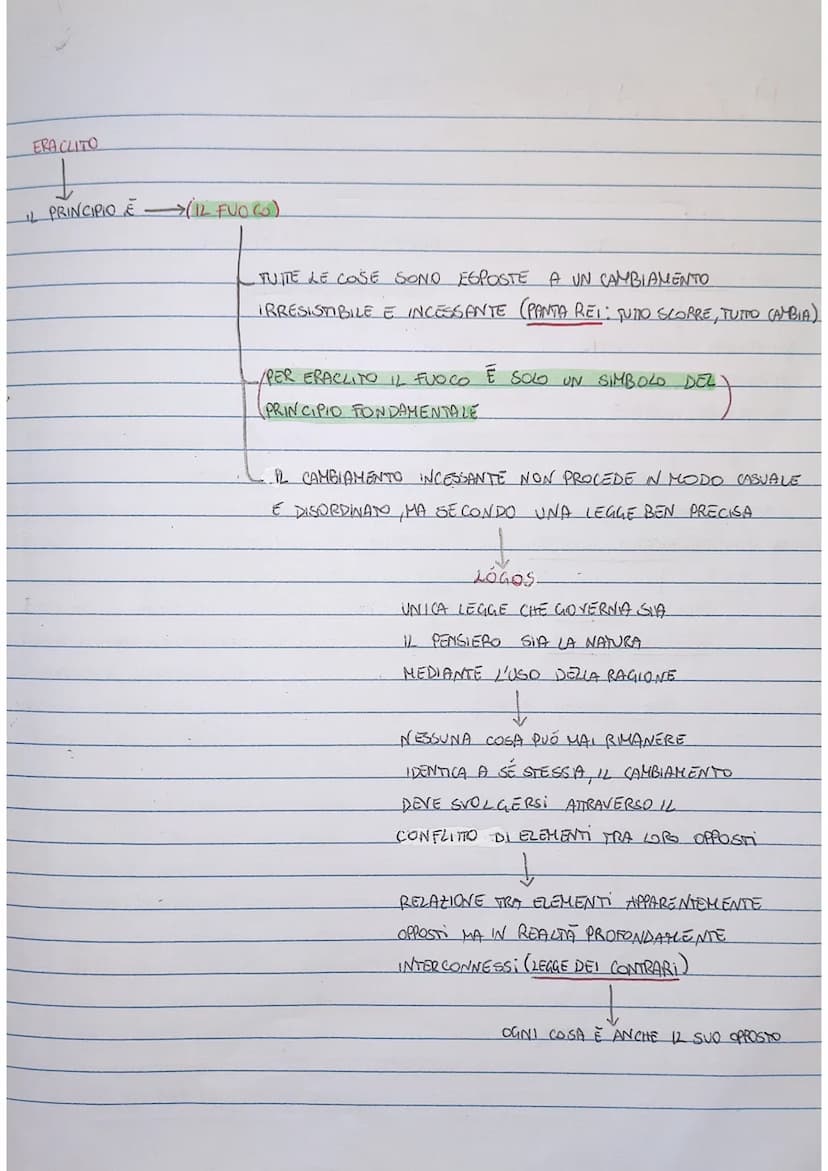 ERACLITO
IL PRINCIPIO È → (IL FUOCO)
TUTTE LE COSE SONO ESPOSTE A UN CAMBIAMENTO
IRRESISTIBILE E INCESSANTE (PANTA REI: TUTTO SCORRE, TUTTO CAMBIA)
(PER ERACLITO IL FUOCO È SOLO UN SIMBOLO DEL
PRINCIPIO FONDAMENTALE)
IL CAMBIAMENTO INCESSANTE NON PROCEDE IN MODO CASUALE
E DISORDINATO, MA SECONDO UNA LEGGE BEN PRECISA
LÓGOS
UNICA LEGGE CHE GOVERNA SIA
IL PENSIERO SIA LA NATURA
MEDIANTE L'USO DELLA RAGIONE
NESSUNA COSA PUÓ MAI RIMANERE
IDENTICA A SÉ STESSA, IL CAMBIAMENTO
DEVE SVOLGERSI ATTRAVERSO IL
CONFLITTO DI ELEMENTI TRA LORO OPPOSTI
RELAZIONE TRA ELEMENTI APPARENTEMENTE
OPPOSTI MA IN REALTÀ PROFONDAMENTE
INTERCONNESSI (LEGGE DEI CONTRARI)
OGNI COSA È ANCHE IL SUO OPPOSTO